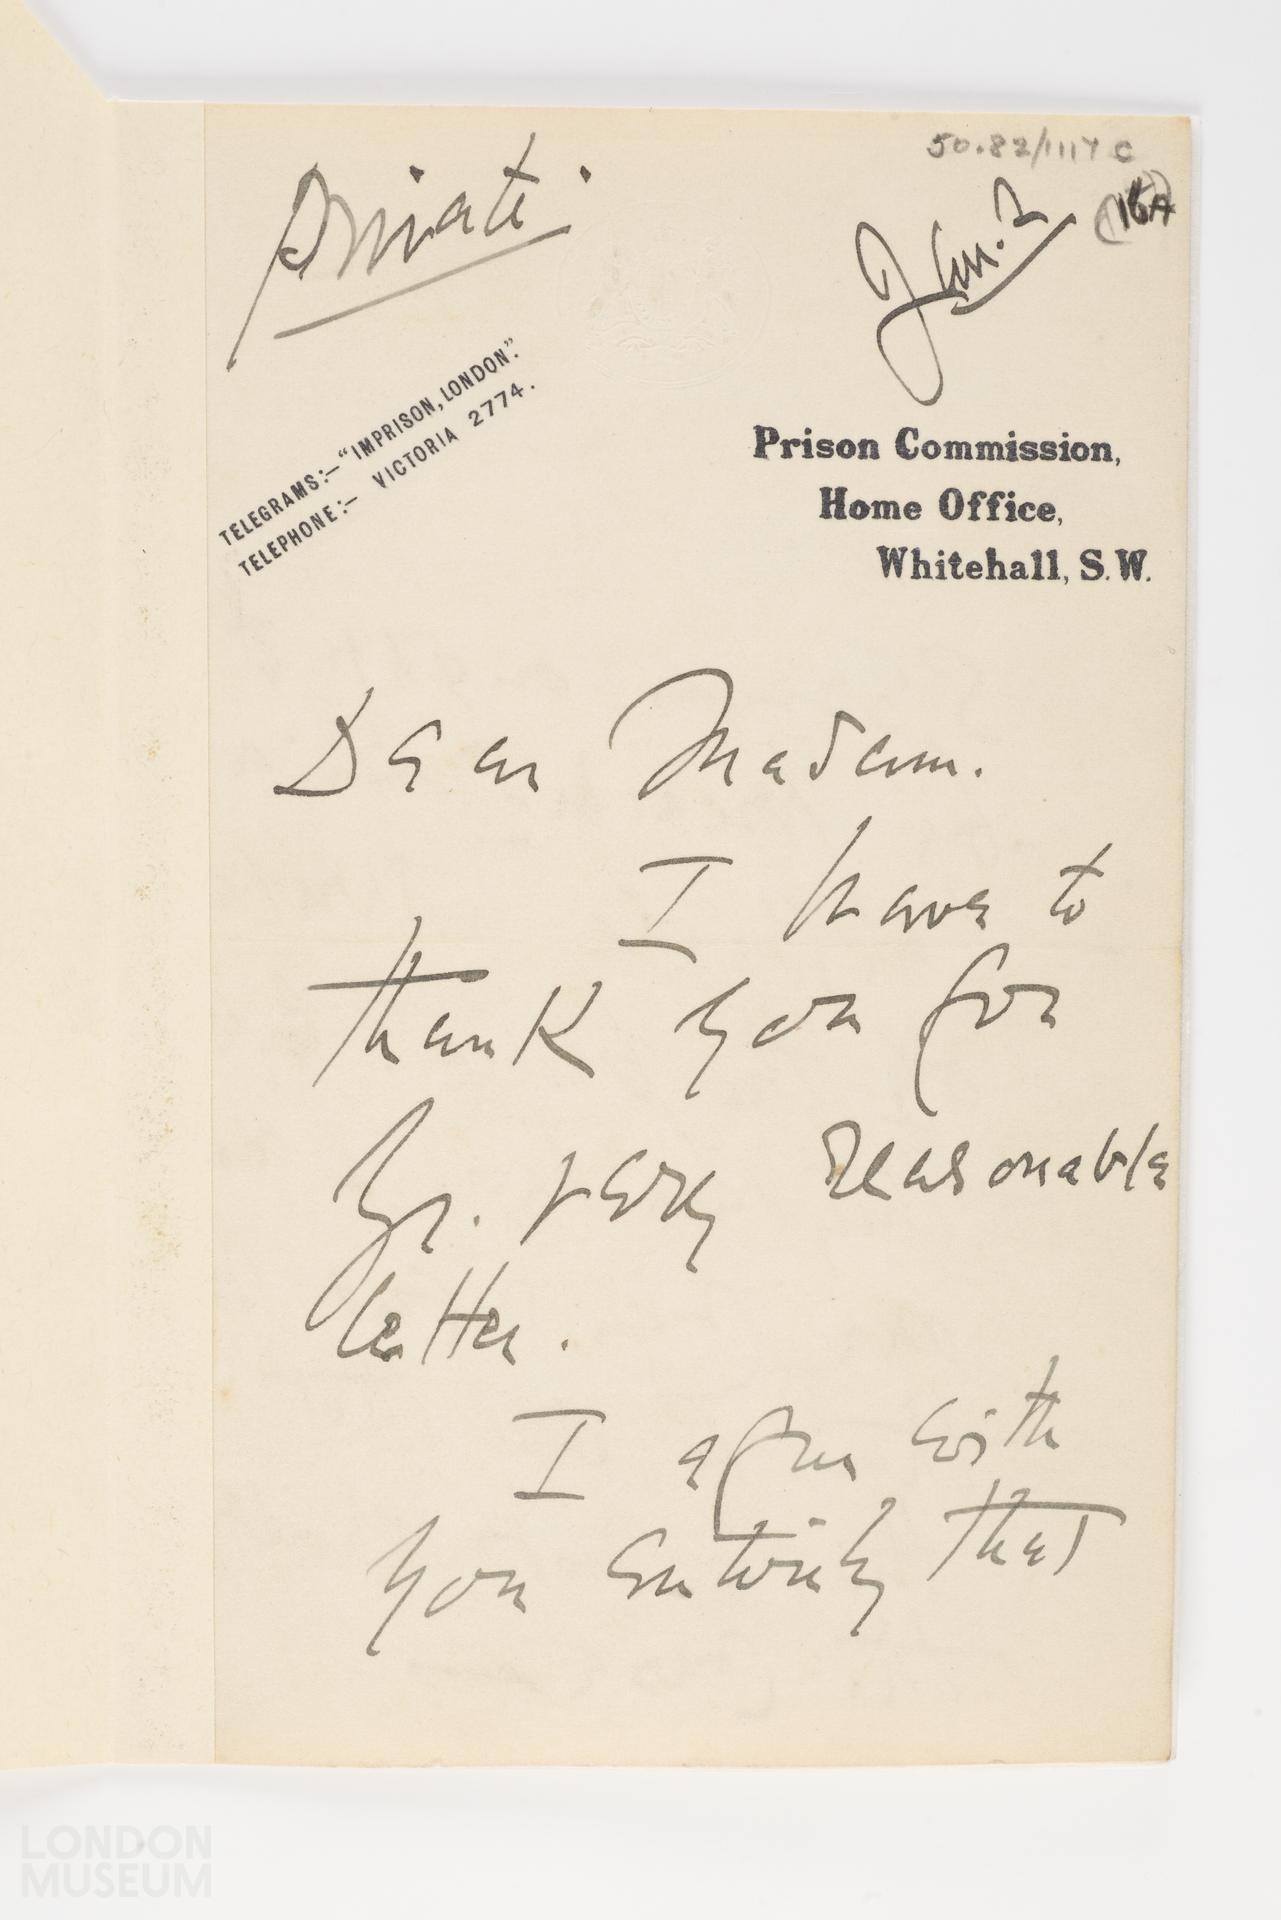 50.82/1117 C
(16A)
Private.
Jan. 2
TELEGRAMS:- "IMPRISON, LONDON".
TELEPHONE:- VICTORIA 2774.
Prison Commission,
Home Office,
Whitehall, S.W.
Dear Madam.
I have to
thank you for
Yr. very reasonable
letter.
I agree with
you entirely that
LONDON
MUSEUM